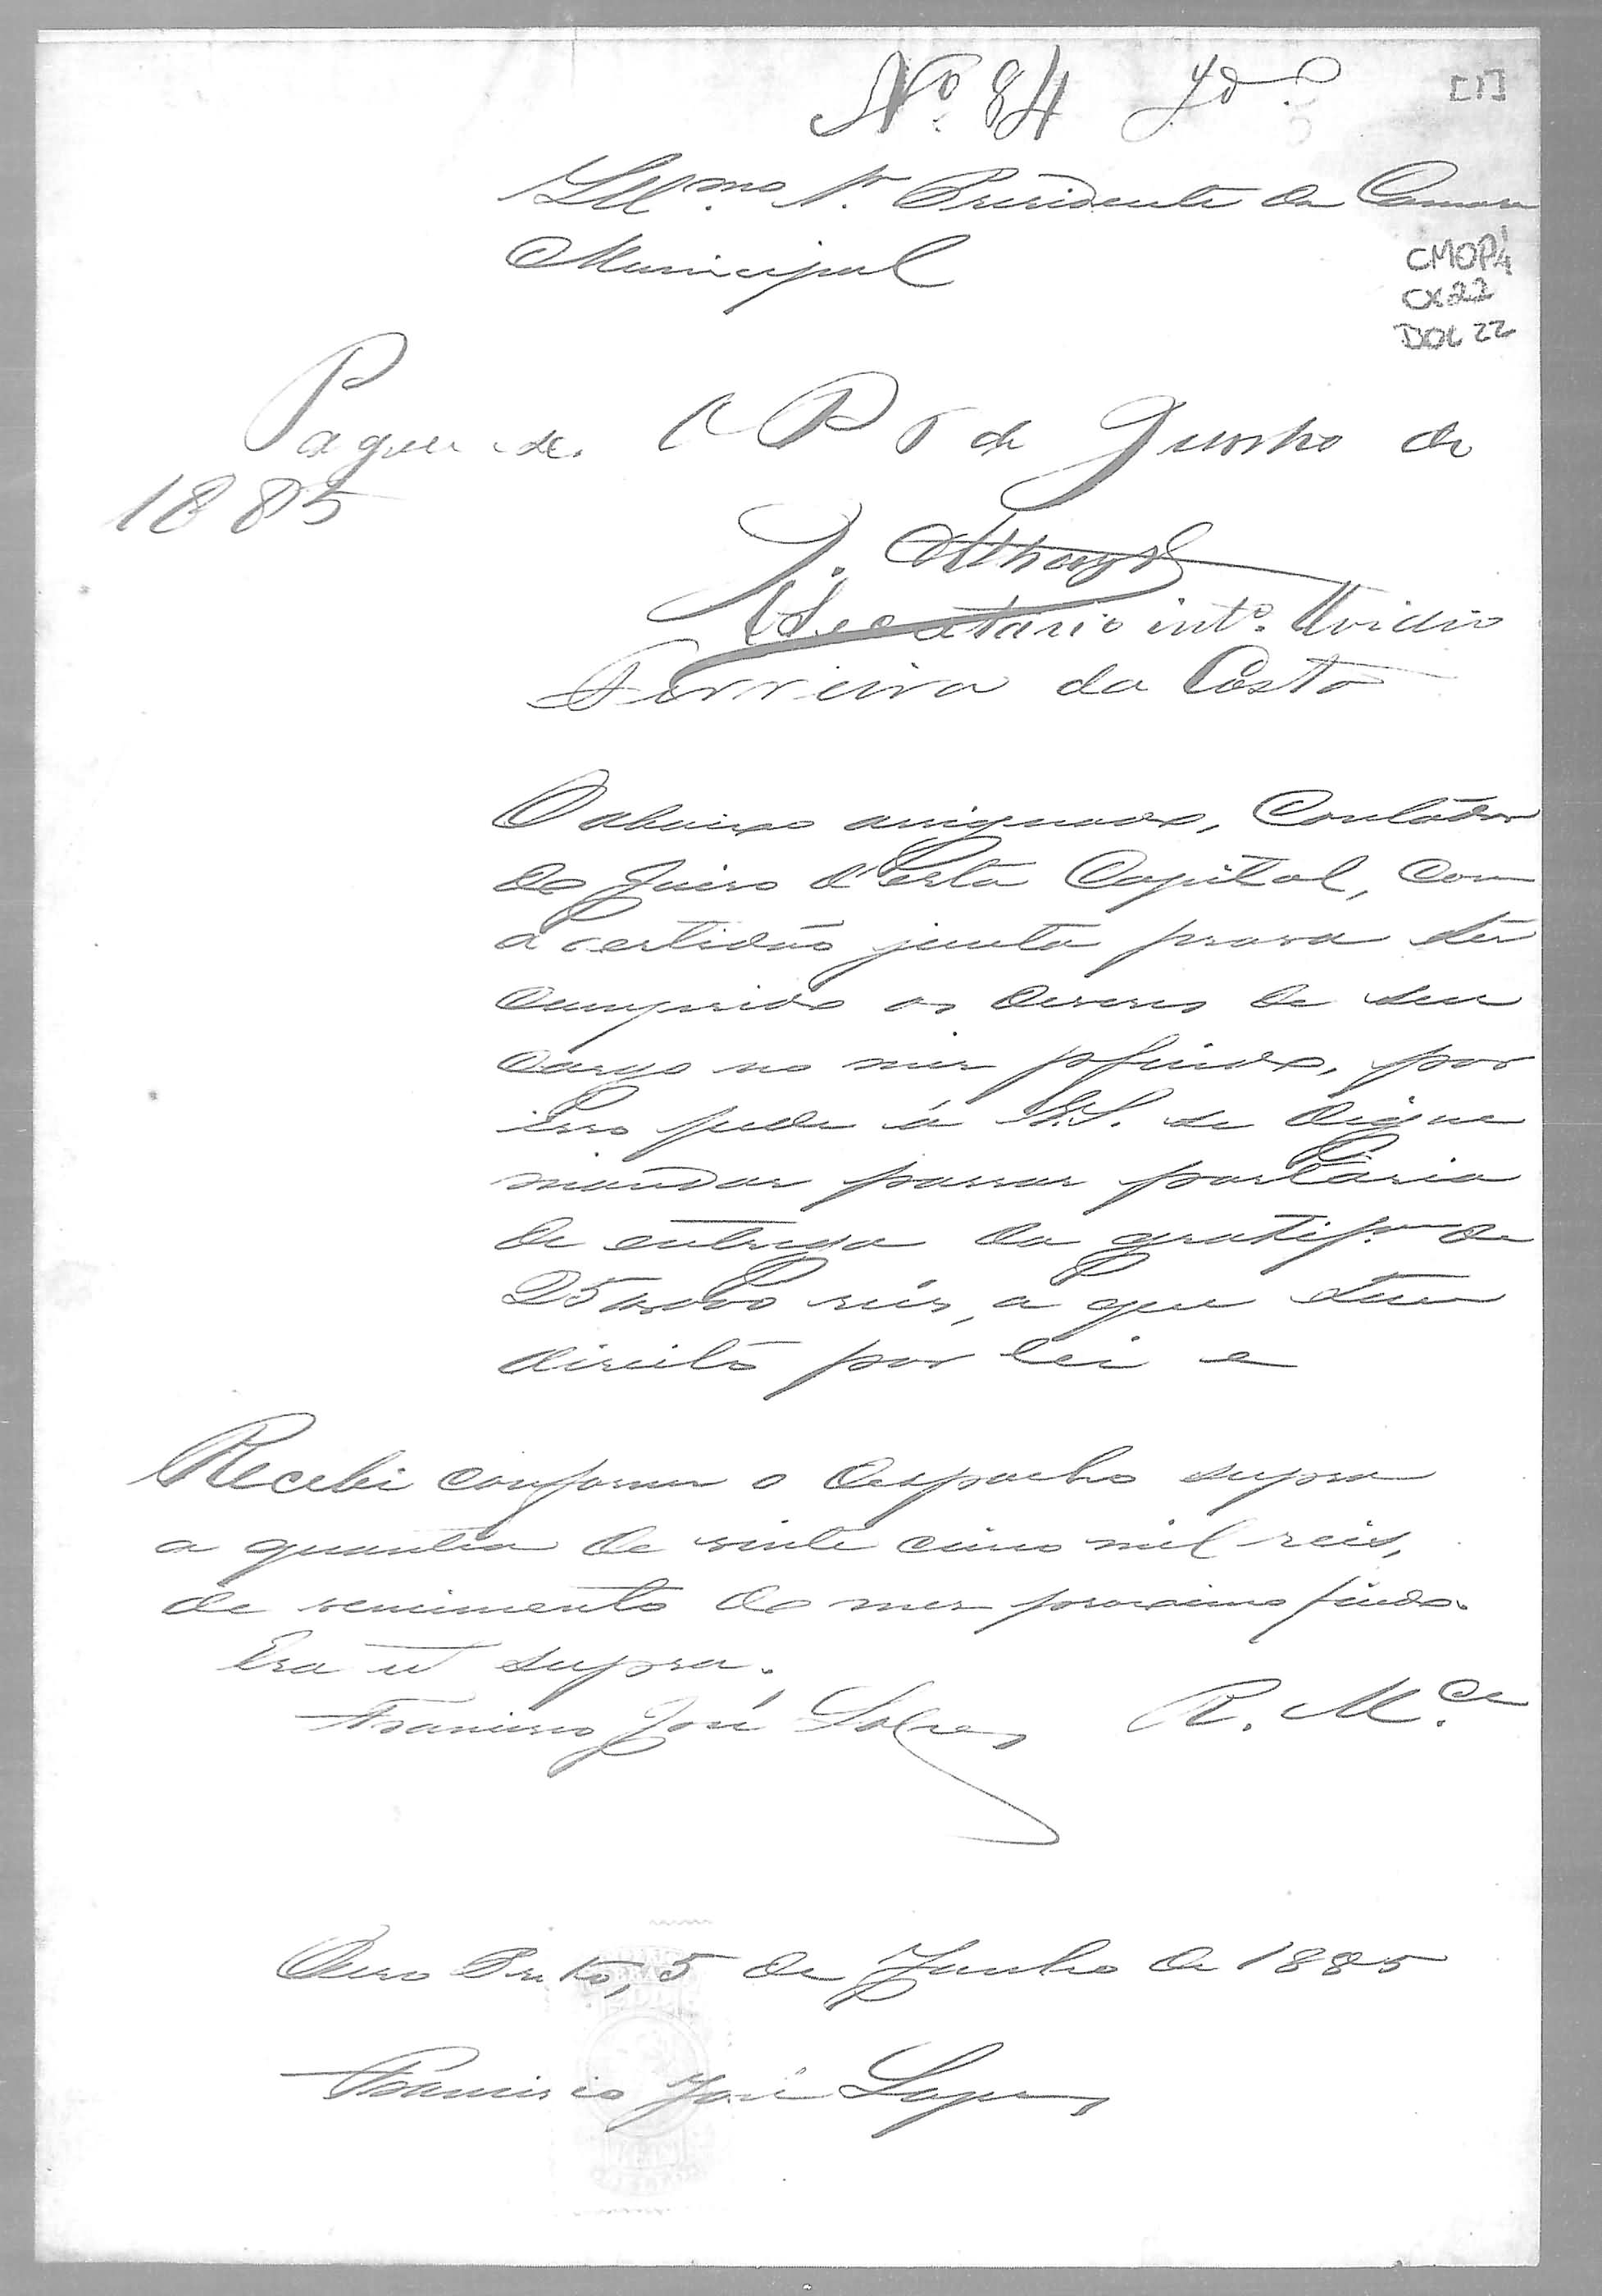 Nº. 84
[1]
Ill.mo Sr. Presidente da Camara
Municipal
CMOP
CX 22
DOC 22
Pague-se. O P 5 de Junho de
1885
O Secretario int.º Ovidio
Ferreira da Costa
O abaixo assignado, Contador
do Juizo d'esta Capital, com
a certidão junta prova ter
cumprido os deveres de seu
cargo no mez p. findo, por
isso pede á V.S. se digne
mandar passar portaria
de entrega da gratif.am de
25$000 reis, a que tem
direito por lei e
Recebi conforme o despacho supra
a quantia de vinte cinco mil reis,
de vencimento do mez proximo findo.
Era ut supra.
Francisco José Lopes
R. M.ce
Ouro Preto, 5 de Junho de 1885
Francisco José Lopes